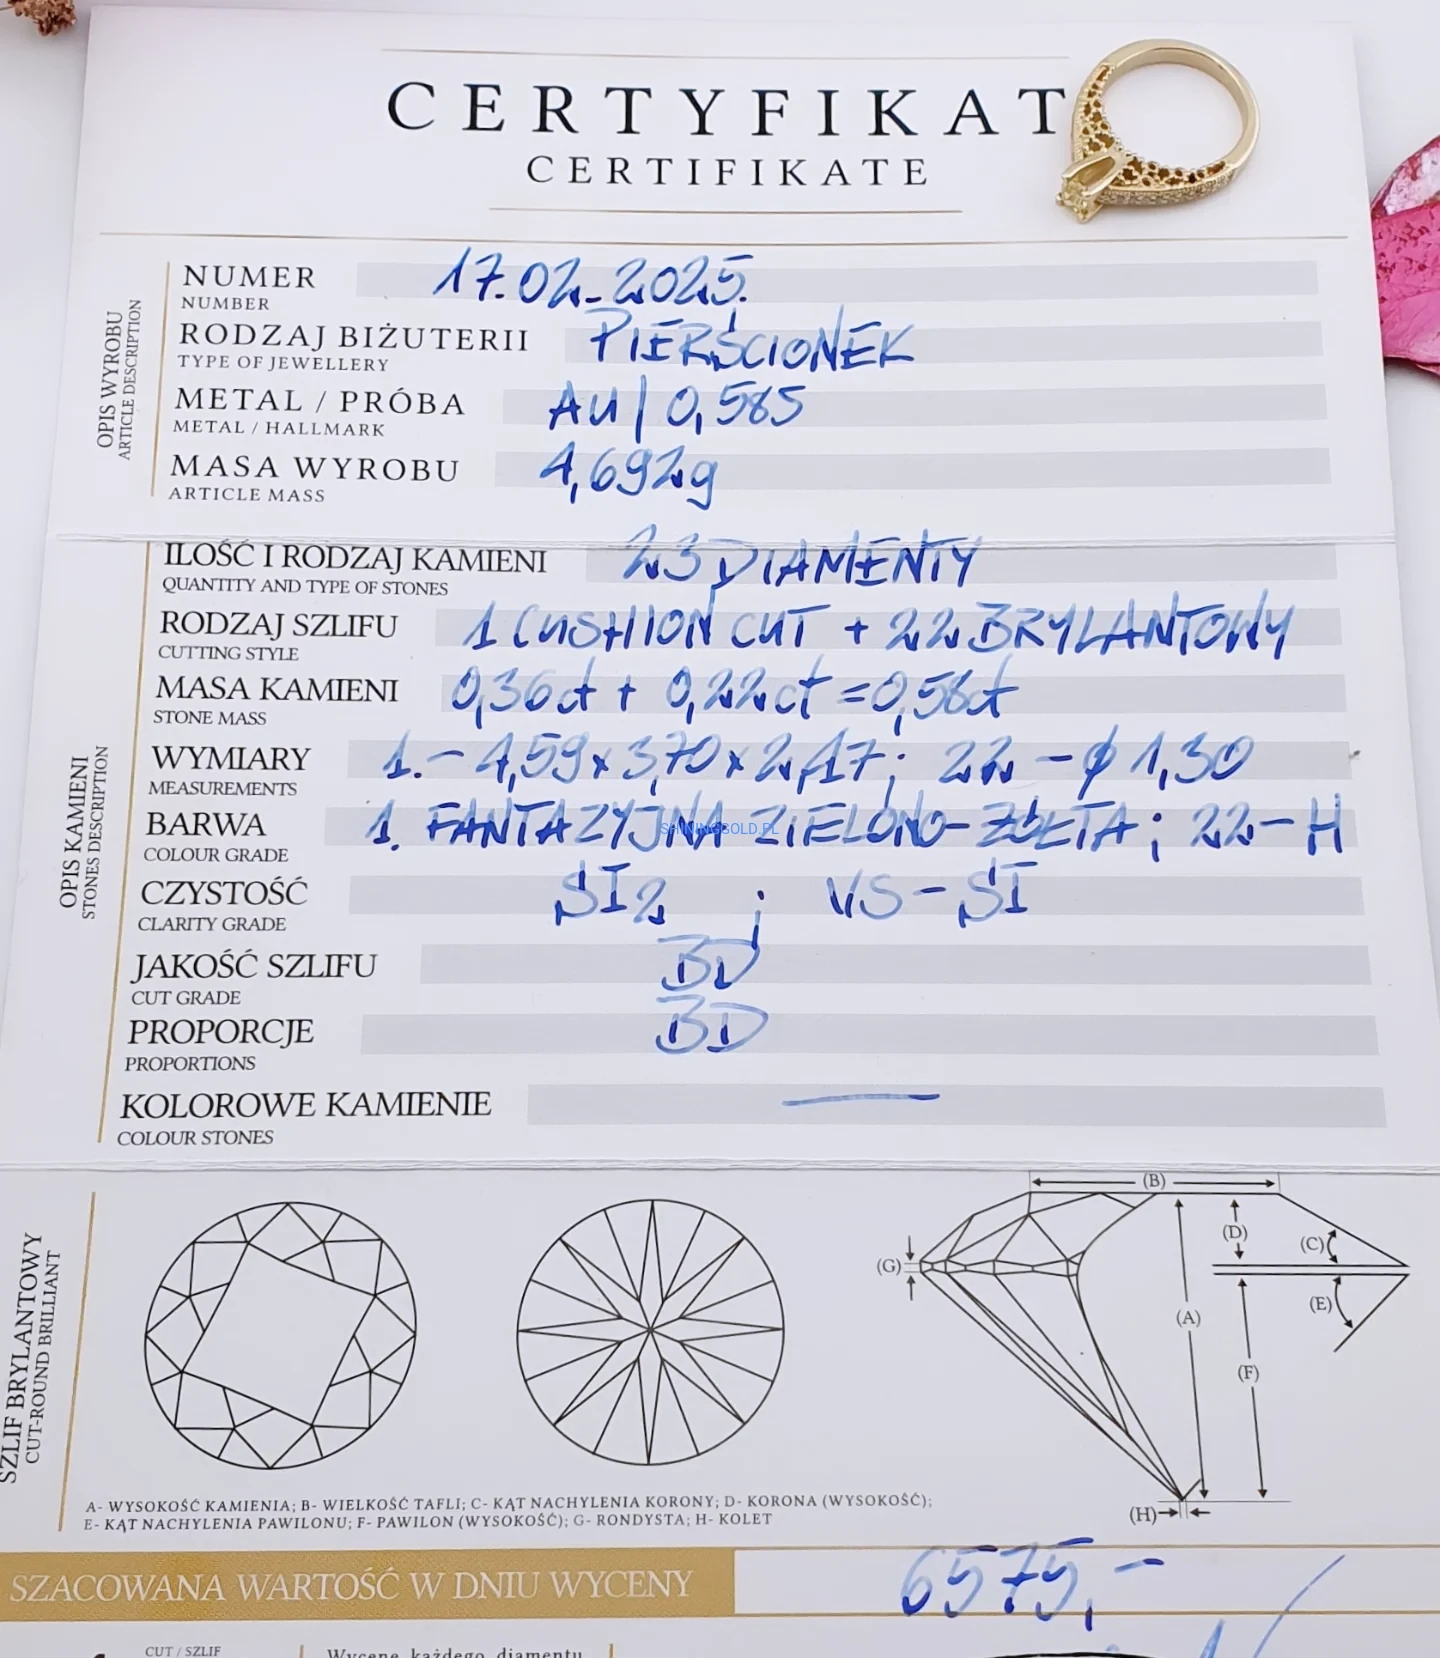 CERTYFIKAT
CERTIFIKATE
OPIS WYROBU
ARTICLE DESCRIPTION
NUMER 17.02.2025.
NUMBER
RODZAJ BIŻUTERII PIERŚCIONEK
TYPE OF JEWELLERY
METAL / PRÓBA AU | 0,585
METAL / HALLMARK
MASA WYROBU 4,692g
ARTICLE MASS
OPIS KAMIENI
STONES DESCRIPTION
ILOŚĆ I RODZAJ KAMIENI 23 DIAMENTY
QUANTITY AND TYPE OF STONES
RODZAJ SZLIFU 1 CUSHION CUT + 22 BRYLANTOWY
CUTTING STYLE
MASA KAMIENI 0,36ct + 0,22ct = 0,58ct
STONE MASS
WYMIARY 1.- 4,59 x 3,70 x 2,17; 22 - ϕ 1,30
MEASUREMENTS
BARWA 1. FANTAZYJNA ZIELONO-ŻÓŁTA; 22-H
SHININGGOLD.PL
COLOUR GRADE
CZYSTOŚĆ SI2 ; VS-SI
CLARITY GRADE
JAKOŚĆ SZLIFU BD
CUT GRADE
PROPORCJE BD
PROPORTIONS
KOLOROWE KAMIENIE —
COLOUR STONES
SZLIF BRYLANTOWY
CUT-ROUND BRILLIANT
(B)
(D)
(C)
(G)
(E)
(A)
(F)
(H)
A- WYSOKOŚĆ KAMIENIA; B- WIELKOŚĆ TAFLI; C- KĄT NACHYLENIA KORONY; D- KORONA (WYSOKOŚĆ);
E- KĄT NACHYLENIA PAWILONU; F- PAWILON (WYSOKOŚĆ); G- RONDYSTA; H- KOLET
SZACOWANA WARTOŚĆ W DNIU WYCENY 6575,-
CUT / SZLIF
Wycenę każdego diamentu